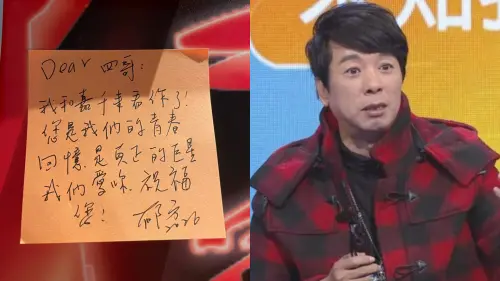 Dear 四哥:
我和嘉千來看你了!
您是我們的青春
回憶.是真正的巨星
我們愛你.祝福
您!
郁方
2026
不知